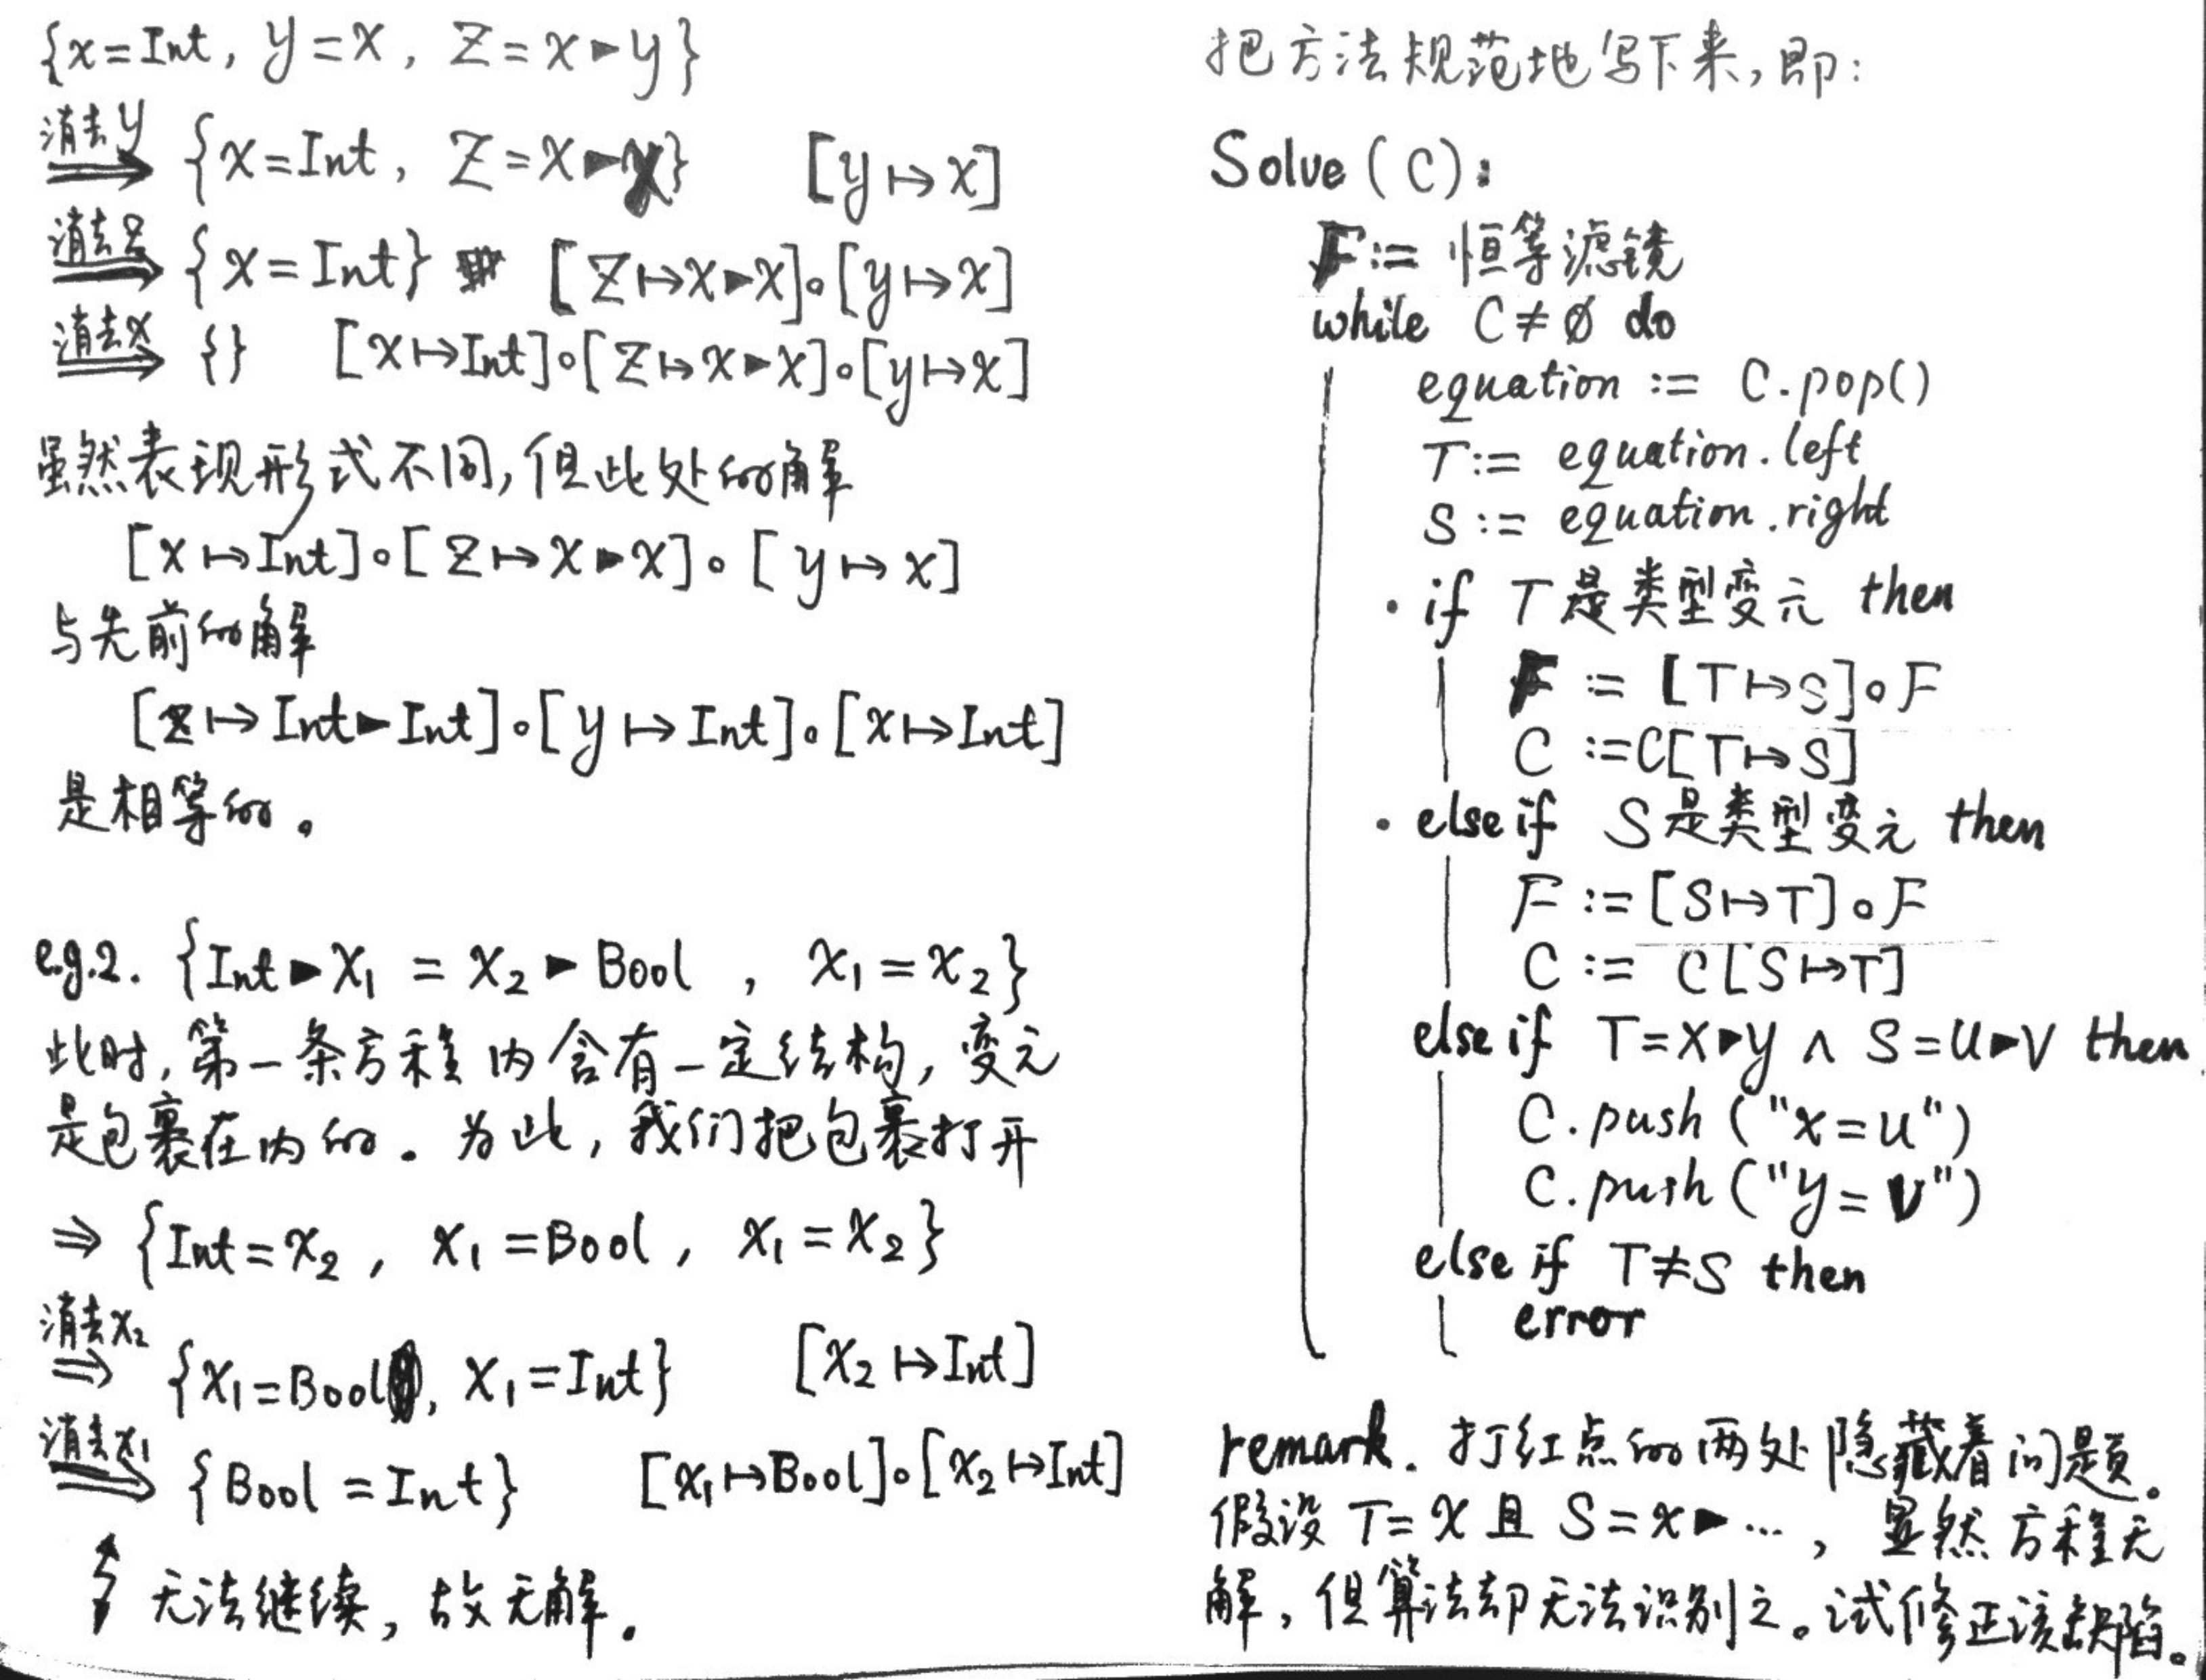 {x=Int, y=x, z=x▸y}
消去y ⟹ {x=Int, z=x▸x} [y↦x]
消去z ⟹ {x=Int} [z↦x▸x]∘[y↦x]
消去x ⟹ {} [x↦Int]∘[z↦x▸x]∘[y↦x]
虽然表现形式不同,但此处的解
[x↦Int]∘[z↦x▸x]∘[y↦x]
与先前的解
[z↦Int▸Int]∘[y↦Int]∘[x↦Int]
是相等的。
e.g.2. {Int▸x₁ = x₂▸Bool , x₁=x₂}
此时,第一条方程内含有一定结构,变元
是包裹在内的。为此,我们把包裹打开
⇒ {Int=x₂, x₁=Bool, x₁=x₂}
消去x₂ ⇒ {x₁=Bool, x₁=Int} [x₂↦Int]
消去x₁ ⟹ {Bool=Int} [x₁↦Bool]∘[x₂↦Int]
无法继续,故无解。
把方法规范地写下来,即:
Solve(C):
F:= 恒等滤镜
while C≠∅ do
equation := C.pop()
T:= equation.left
S:= equation.right
· if T是类型变元 then
F := [T↦S]∘F
C :=C[T↦S]
· else if S是类型变元 then
F :=[S↦T]∘F
C := C[S↦T]
else if T=X▸Y ∧ S=U▸V then
C.push("X=U")
C.push("Y=V")
else if T≠S then
error
remark. 打红点的两处隐藏着问题。
假设 T=x且 S=x▸…, 显然方程无
解,但算法却无法识别之。试修正该缺陷。